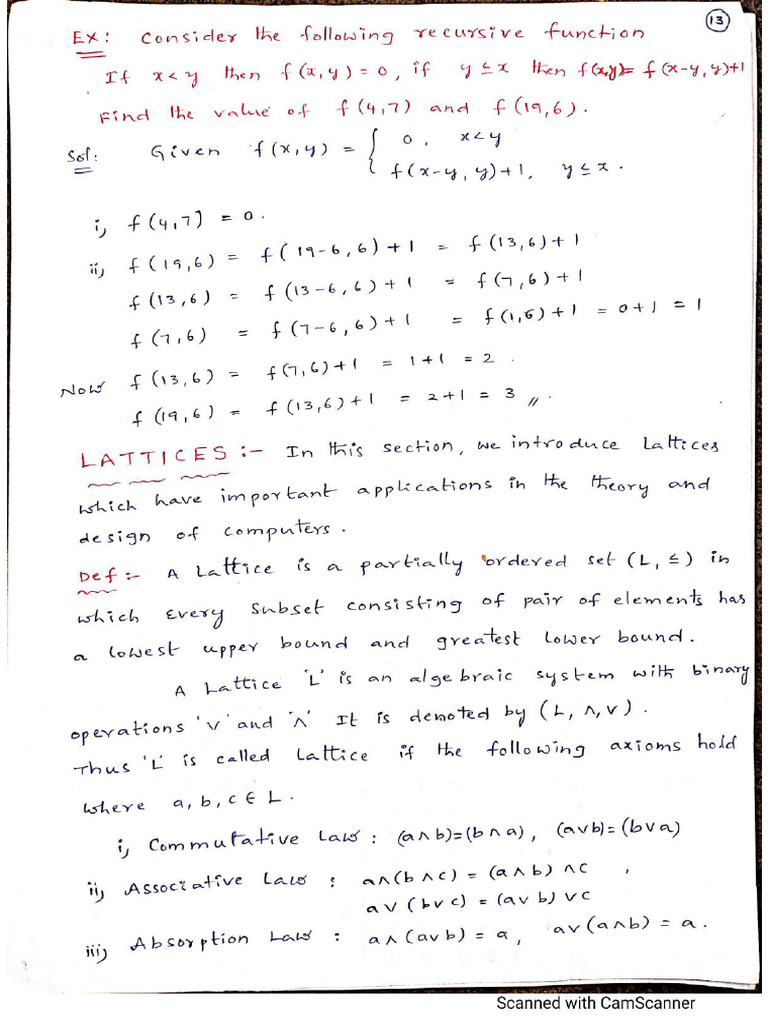 13
Ex: Consider the following recursive function
If x<y then f(x,y)=0, if y≤x then f(x,y)= f(x-y,y)+1
Find the value of f(4,7) and f(19,6).
Sol: Given f(x,y) = { 0, x<y
f(x-y, y)+1, y≤x.
i, f(4,7] = 0.
ii, f(19,6) = f(19-6,6)+1 = f(13,6)+1
f(13,6) = f(13-6,6)+1 = f(7,6)+1
f(7,6) = f(7-6,6)+1 = f(1,6)+1 = 0+1 = 1
Now f(13,6) = f(7,6)+1 = 1+1 = 2.
f(19,6) = f(13,6)+1 = 2+1 = 3 //.
LATTICES :- In this section, we introduce Lattices
which have important applications in the theory and
design of computers.
Def :- A Lattice is a partially ordered set (L, ≤) in
which Every Subset consisting of pair of elements has
a lowest upper bound and greatest lower bound.
A Lattice 'L' is an algebraic system with binary
operations 'v' and '∧' It is denoted by (L, ∧, ∨).
Thus 'L' is called Lattice if the following axioms hold
where a, b, c ∈ L.
i, Commutative Law : (a∧b)=(b∧a), (a∨b)=(b∨a)
ii, Associative Law : a∧(b∧c) = (a∧b)∧c ,
a∨(b∨c) = (a∨b)∨c
iii, Absorption Law : a∧(a∨b) = a, a∨(a∧b) = a.
Scanned with CamScanner